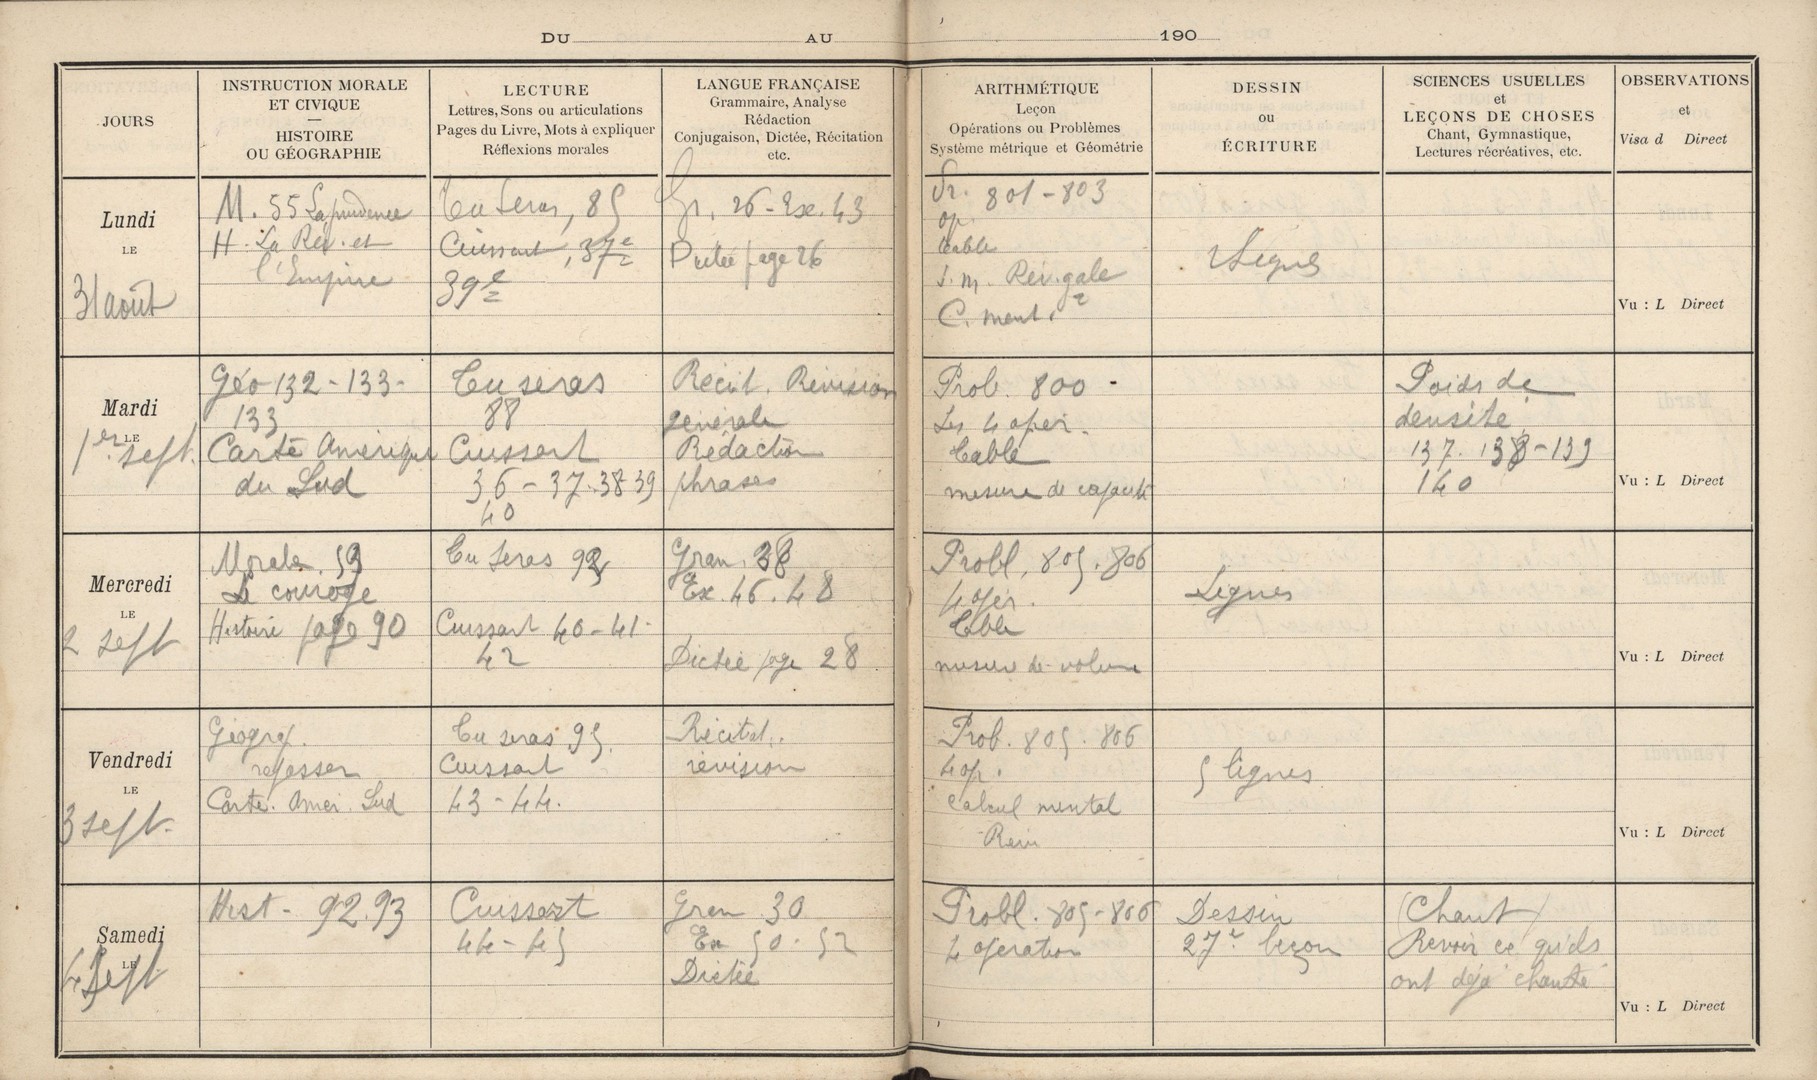 DU AU 190
JOURS
INSTRUCTION MORALE
ET CIVIQUE
—
HISTOIRE
OU GÉOGRAPHIE
LECTURE
Lettres, Sons ou articulations
Pages du Livre, Mots à expliquer
Réflexions morales
LANGUE FRANÇAISE
Grammaire, Analyse
Rédaction
Conjugaison, Dictée, Récitation
etc.
ARITHMÉTIQUE
Leçon
Opérations ou Problèmes
Système métrique et Géométrie
DESSIN
OU
ÉCRITURE
SCIENCES USUELLES
et
LEÇONS DE CHOSES
Chant, Gymnastique,
Lectures récréatives, etc.
OBSERVATIONS
et
Visa d Direct
Lundi
LE
31 août
M. 55 La prudence
H. La Rév. et
l'Empire
Tu seras, 85
Cuissart, 37e
39e
Gr. 26 - Ex. 43
Dictée page 26
Pr. 801 - 803
op.
table
S. m. Rév. gale
C. ment.
Lignes
Vu : L Direct
Mardi
LE
1er sept.
Géo 132 - 133 -
133
Carte Amérique
du Sud
Tu seras
88
Cuissart
36 - 37. 38 39
40
Récit. Révision
générale
Rédaction
phrases
Prob. 800 -
Les 4 opér.
Table
mesure de capacité
Poids de
densité
137. 138 - 139
140
Vu : L Direct
Mercredi
LE
2 sept
Morale. 59
Le courage
Histoire page 90
Tu seras 92
Cuissart 40 - 41 -
42
Gram. 28
Ex. 46. 48
Dictée page 28
Probl. 805. 806
4 opér.
Table
mesure de volume
Lignes
Vu : L Direct
Vendredi
LE
3 sept.
Géogra.
repasser
Carte. Amér. Sud
Tu seras 95.
Cuissart
43 - 44.
Récitat.
révision
Prob. 805. 806
4 op.
Calcul mental
Rev
5 lignes
Vu : L Direct
Samedi
LE
4 Sept
Hist - 92. 93
Cuissart
44 - 45
Gram 30
Ex 50. 52
Dictée
Probl. 805 - 806
4 opération
Dessin
27e leçon
(Chant)
Revoir ce qu'ils
ont déjà chanté
Vu : L Direct